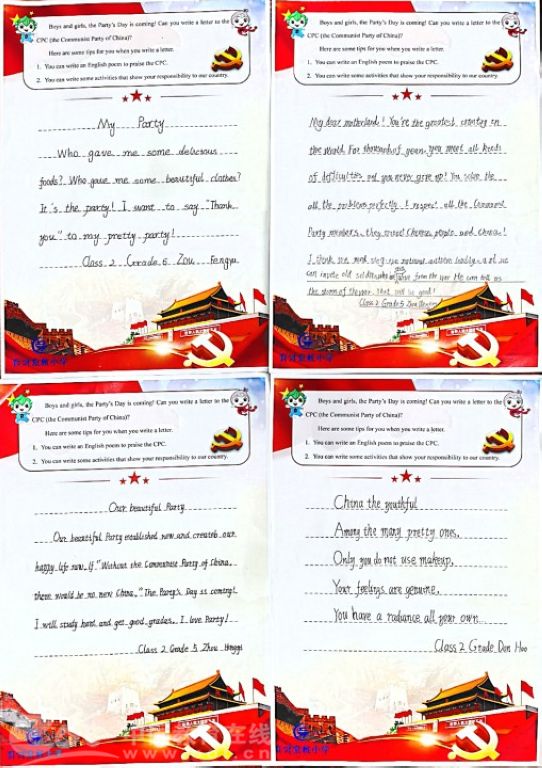 Boys and girls, the Party's Day is coming! Can you write a letter to the
CPC (the Communist Party of China)?
Here are some tips for you when you write a letter.
1. You can write an English poem to praise the CPC.
2. You can write some activities that show your responsibility to our country.
My Party
Who gave me some delicious
foods? Who gave me some beautiful clothes?
It's the party! I want to say "Thank
you" to my pretty party!
Class 2 Grade 5 Zou Fengya
Boys and girls, the Party's Day is coming! Can you write a letter to the
CPC (the Communist Party of China)?
Here are some tips for you when you write a letter.
1. You can write an English poem to praise the CPC.
2. You can write some activities that show your responsibility to our country.
My dear motherland! You're the greatest country in
the world. For thousands of years, you meet all kinds
of difficulties and you never give up! You solve the
all the problems perfectly. I respect all the Communist
Party members, they Chinese people and China!
I think we must sing the national anthem loudly, and we
can invite old soldiers from the war. He can tell us
the storm of the war. That will be good!
Class 2 Grade 5 Zhou
Boys and girls, the Party's Day is coming! Can you write a letter to the
CPC (the Communist Party of China)?
Here are some tips for you when you write a letter.
1. You can write an English poem to praise the CPC.
2. You can write some activities that show your responsibility to our country.
Our beautiful Party
Our beautiful Party established new and created our
happy life now. If "Without the Communist Party of China,
there would be no new China." The Party's Day is coming!
I will study hard and get good grades. I love Party!
Class 2 Grade 5 Zhou
Boys and girls, the Party's Day is coming! Can you write a letter to the
CPC (the Communist Party of China)?
Here are some tips for you when you write a letter.
1. You can write an English poem to praise the CPC.
2. You can write some activities that show your responsibility to our country.
China the youthful
Among the many pretty ones,
Only you do not use makeup,
Your feelings are genuine,
You have a radiance all your own
Class 2 Grade Don Hao